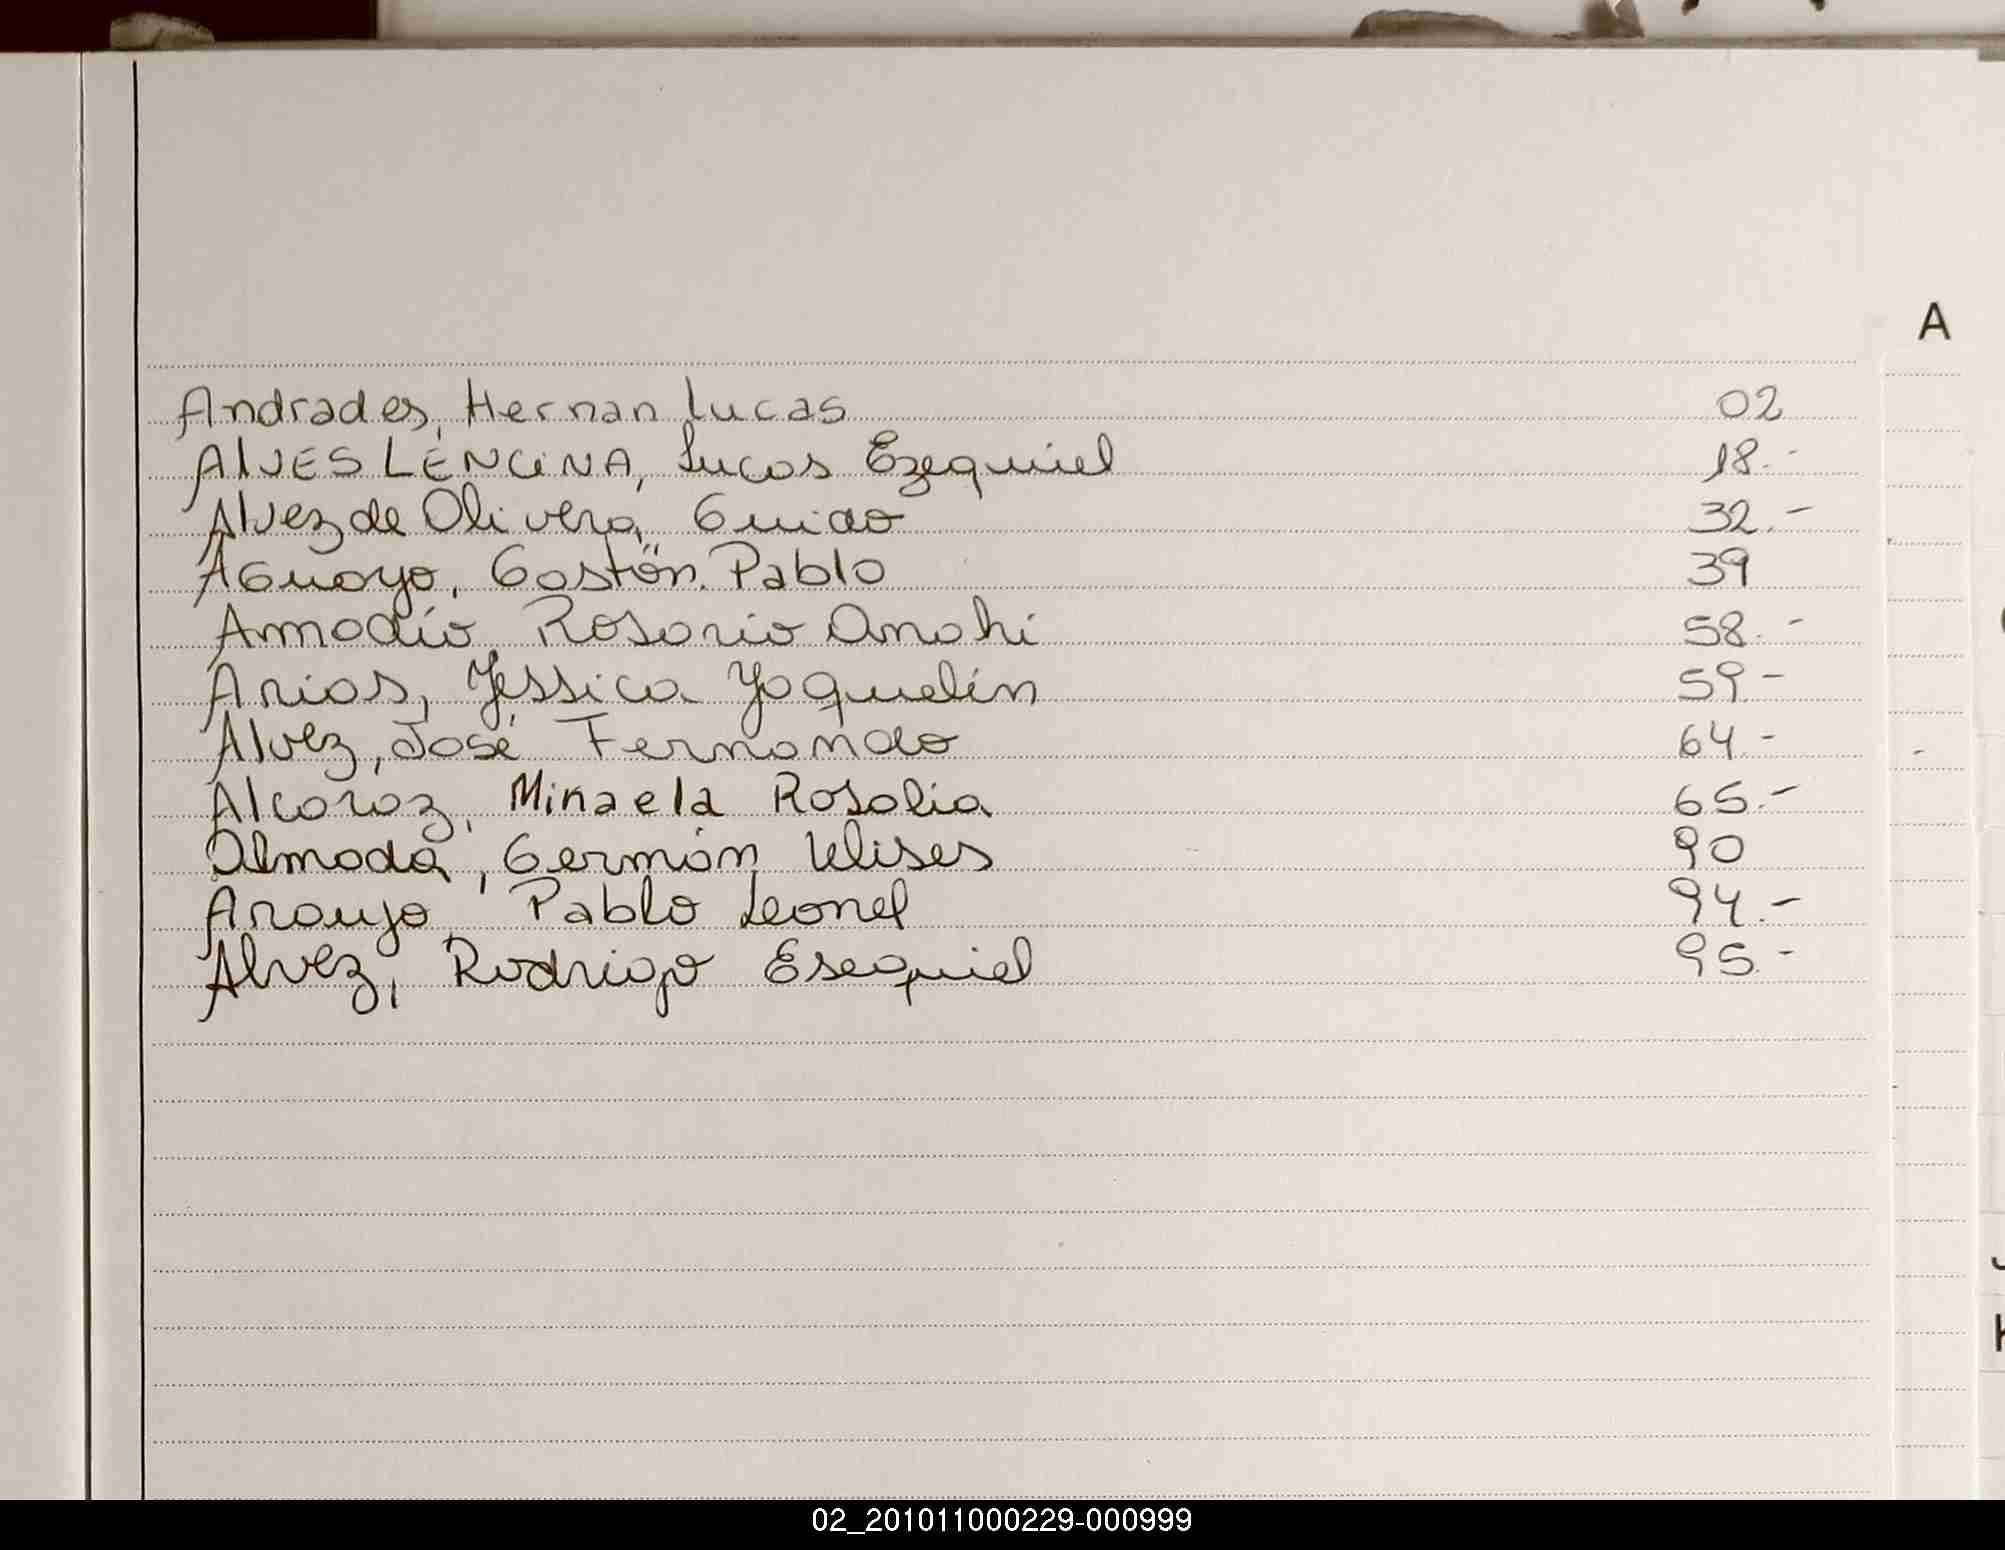 A
Andrades, Hernan Lucas 02
AlVES LENCINA, Lucas Ezequiel 18.-
Alvez de Olivera, Guido 32.-
AGuayo, Gastón Pablo 39
Amodio, Rosario Anahi 58.-
Arias, Yessica Yaquelin 59-
Alvez, José Fernando 64.-
Alcaraz, Mikaela Rosalia 65.-
Almada, Germán Ulises 90
Araujo, Pablo Leonel 94.-
Alvez, Rodrigo Esequiel 95.-
02_201011000229-000999